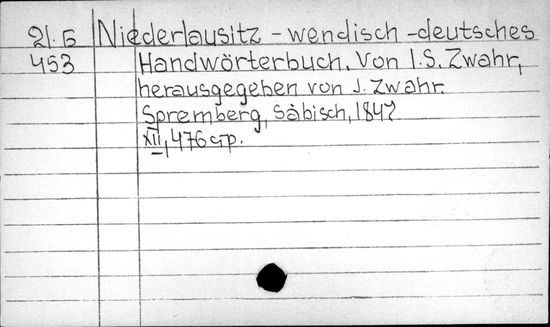 21.Б Niederlausitz - wendisch - deutsches
453 Handwörterbuch. Von I.S. Zwahr,
herausgegeben von J. Zwahr.
Spremberg, Säbisch, 1847
XII, 476 стр.